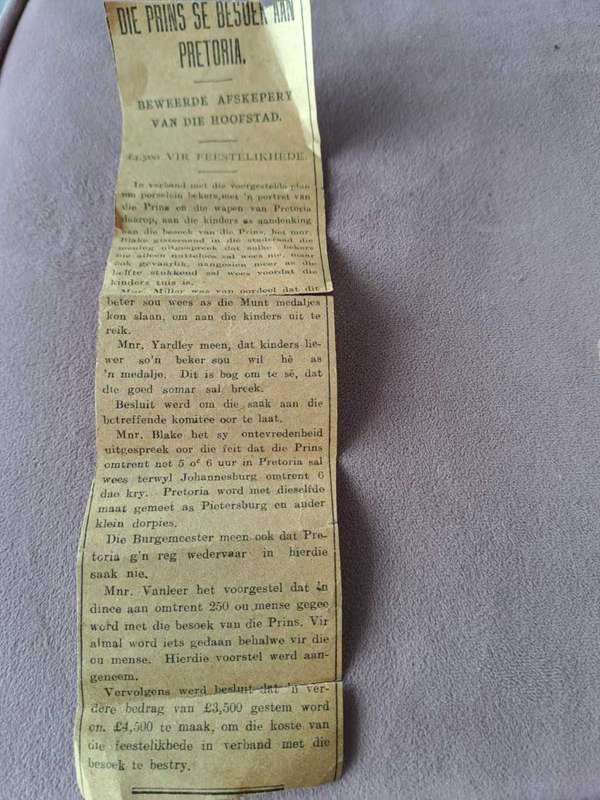 DIE PRINS SE BESOEK AAN
PRETORIA.
BEWEERDE AFSKEPERY
VAN DIE HOOFSTAD.
£4,500 VIR FEESTELIKHEDE.
In verband met die voorgestelde plan
om porselein bekers, met 'n portret van
die Prins en die wapen van Pretoria
daarop, aan die kinders as aandenking
aan die besoek van die Prins, het mnr.
Blake gisteraand in die stadsraad die
mening uitgespreek dat sulke bekers
nie alleen nutteloos sal wees nie, maar
ook gevaarlik, aangesien meer as die
helfte stukkend sal wees voordat die
kinders tuis is.
Mnr. Miller was van oordeel dat dit
beter sou wees as die Munt medaljes
kon slaan, om aan die kinders uit te
reik.
Mnr. Yardley meen, dat kinders lie-
wer so'n beker sou wil hê as
'n medalje. Dit is bog om te sê, dat
die goed somar sal breek.
Besluit werd om die saak aan die
betreffende komitee oor te laat.
Mnr. Blake het sy ontevredenheid
uitgespreek oor die feit dat die Prins
omtrent net 5 of 6 uur in Pretoria sal
wees terwyl Johannesburg omtrent 6
dae kry. Pretoria word met dieselfde
maat gemeet as Pietersburg en ander
klein dorpies.
Die Burgemeester meen ook dat Pre-
toria g'n reg wedervaar in hierdie
saak nie.
Mnr. Vanleer het voorgestel dat 'n
dinee aan omtrent 250 ou mense gegee
word met die besoek van die Prins. Vir
almal word iets gedaan behalwe vir die
ou mense. Hierdie voorstel werd aan-
geneem.
Vervolgens werd besluit dat 'n ver-
dere bedrag van £3,500 gestem word
om £4,500 te maak, om die koste van
die feestelikhede in verband met die
besoek te bestry.